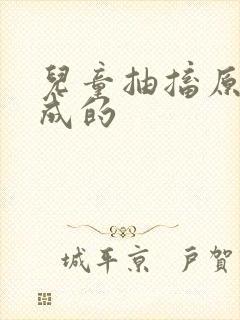 兒童抽搐原
成的
城平京 戶賀